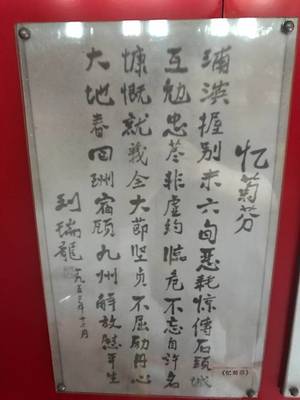 忆菊芬
浦滨握别未六旬恶耗惊传石头城
互勉忠荩非虚约临危不忘自许名
慷慨就义全大节坚贞不屈励丹心
大地春回酬宿愿九州解放慰平生
刘瑞龙
一九五三年十二月
《忆菊芬》